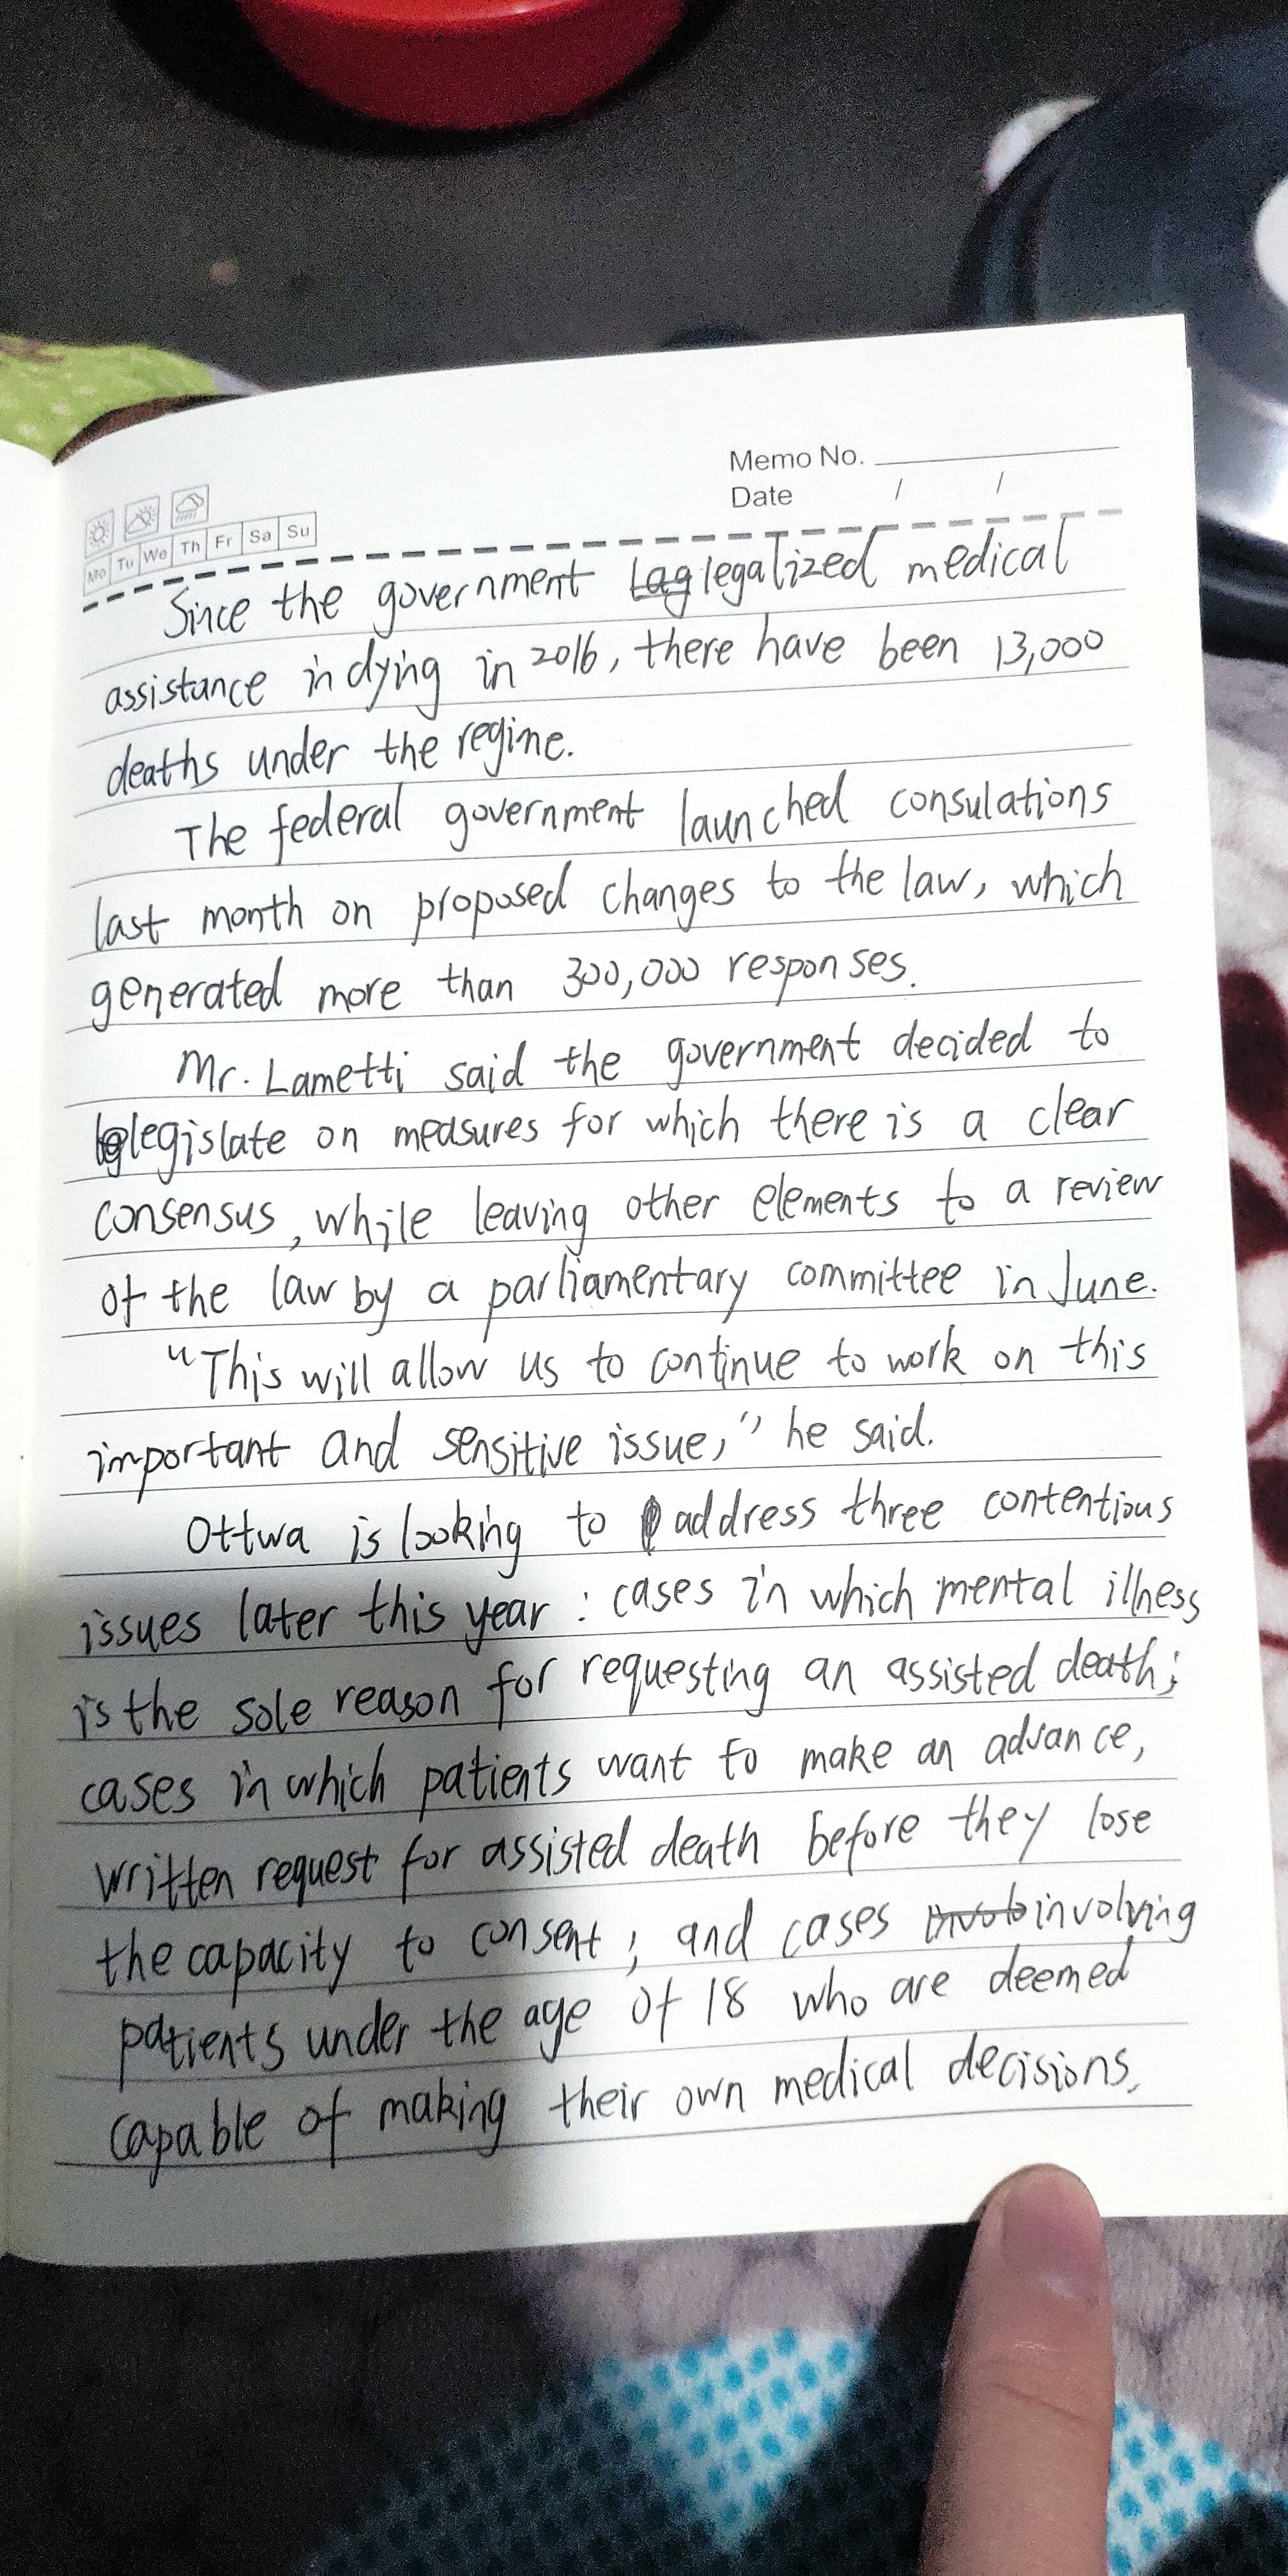 Memo No.
Date / /
Mo Tu We Th Fr Sa Su
Since the government legalized medical
assistance in dying in 2016, there have been 13,000
deaths under the regime.
The federal government launched consulations
last month on proposed changes to the law, which
generated more than 300,000 responses.
Mr. Lametti said the government decided to
legislate on measures for which there is a clear
consensus, while leaving other elements to a review
of the law by a parliamentary committee in June.
"This will allow us to continue to work on this
important and sensitive issue," he said.
Ottwa is looking to address three contentious
issues later this year : cases in which mental illness
is the sole reason for requesting an assisted death;
cases in which patients want to make an advance,
written request for assisted death before they lose
the capacity to consent ; and cases involving
patients under the age of 18 who are deemed
capable of making their own medical decisions.